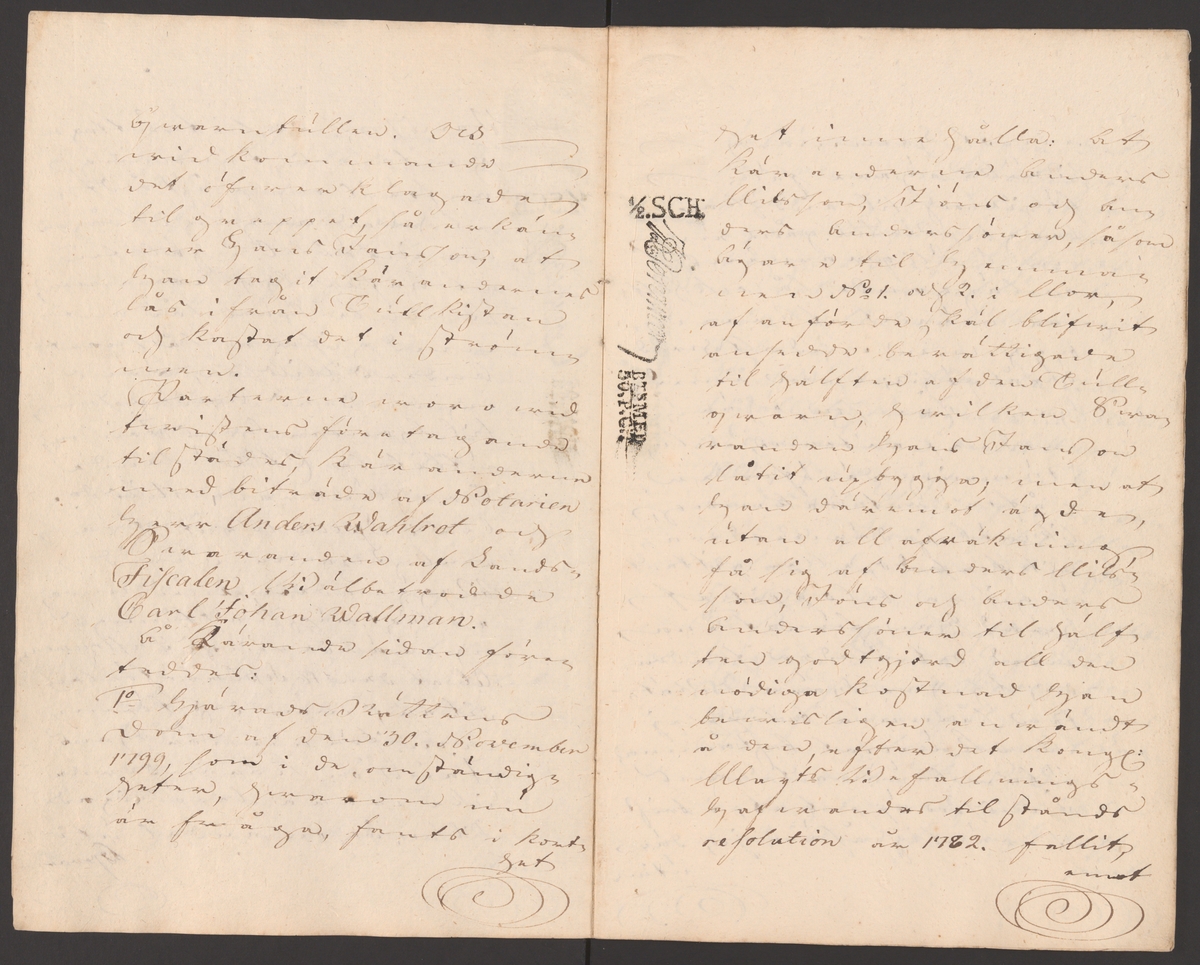 qvarntullen. Och
vid kommande
det öfverklagade
tilgreppet, så erkän-
ner Hans Jansson, at
han tagit Kärandernes
lås ifrån Tullkistan
och kastat det i ström-
men.
Parterne voro vid
tvistens företagande
tilstädes, Käranderne
med biträde af Notarien
Herr Anders Wahlrot och
Svaranden af Lands-
Fiscalen Wälbetrodde
Carl Johan Wallman.
Å Kärande sidan före-
teddes:
1o Härads Rättens
Dom af den 30. November
1799, som i de omständig-
heter, hvarom nu
är fråga, fants i kort-
het
het innehålla: At
Käranderne Anders
Nilsson, Jöns och An-
ders Anderssöner, såsom
ägare til Hemma-
nen No 1. och 2. i Mor,
af anförde skäl blifvit
ansedde berättigade
til hälften af den Tull-
qvarn, hvilken Sva-
randen Hans Jansson
låtit upbygga, men at
han däremot ägde,
utan all afräkning
få sig af Anders Nils-
son, Jöns och Anders
Anderssöner til hälf-
ten godtgjord all den
nödiga kostnad han
bevisligen användt
å den, efter det Kongl:
Mayts Befallnings-
hafvandes tilstånds
resolution år 1782. fallit,
emot
1/2.SCH